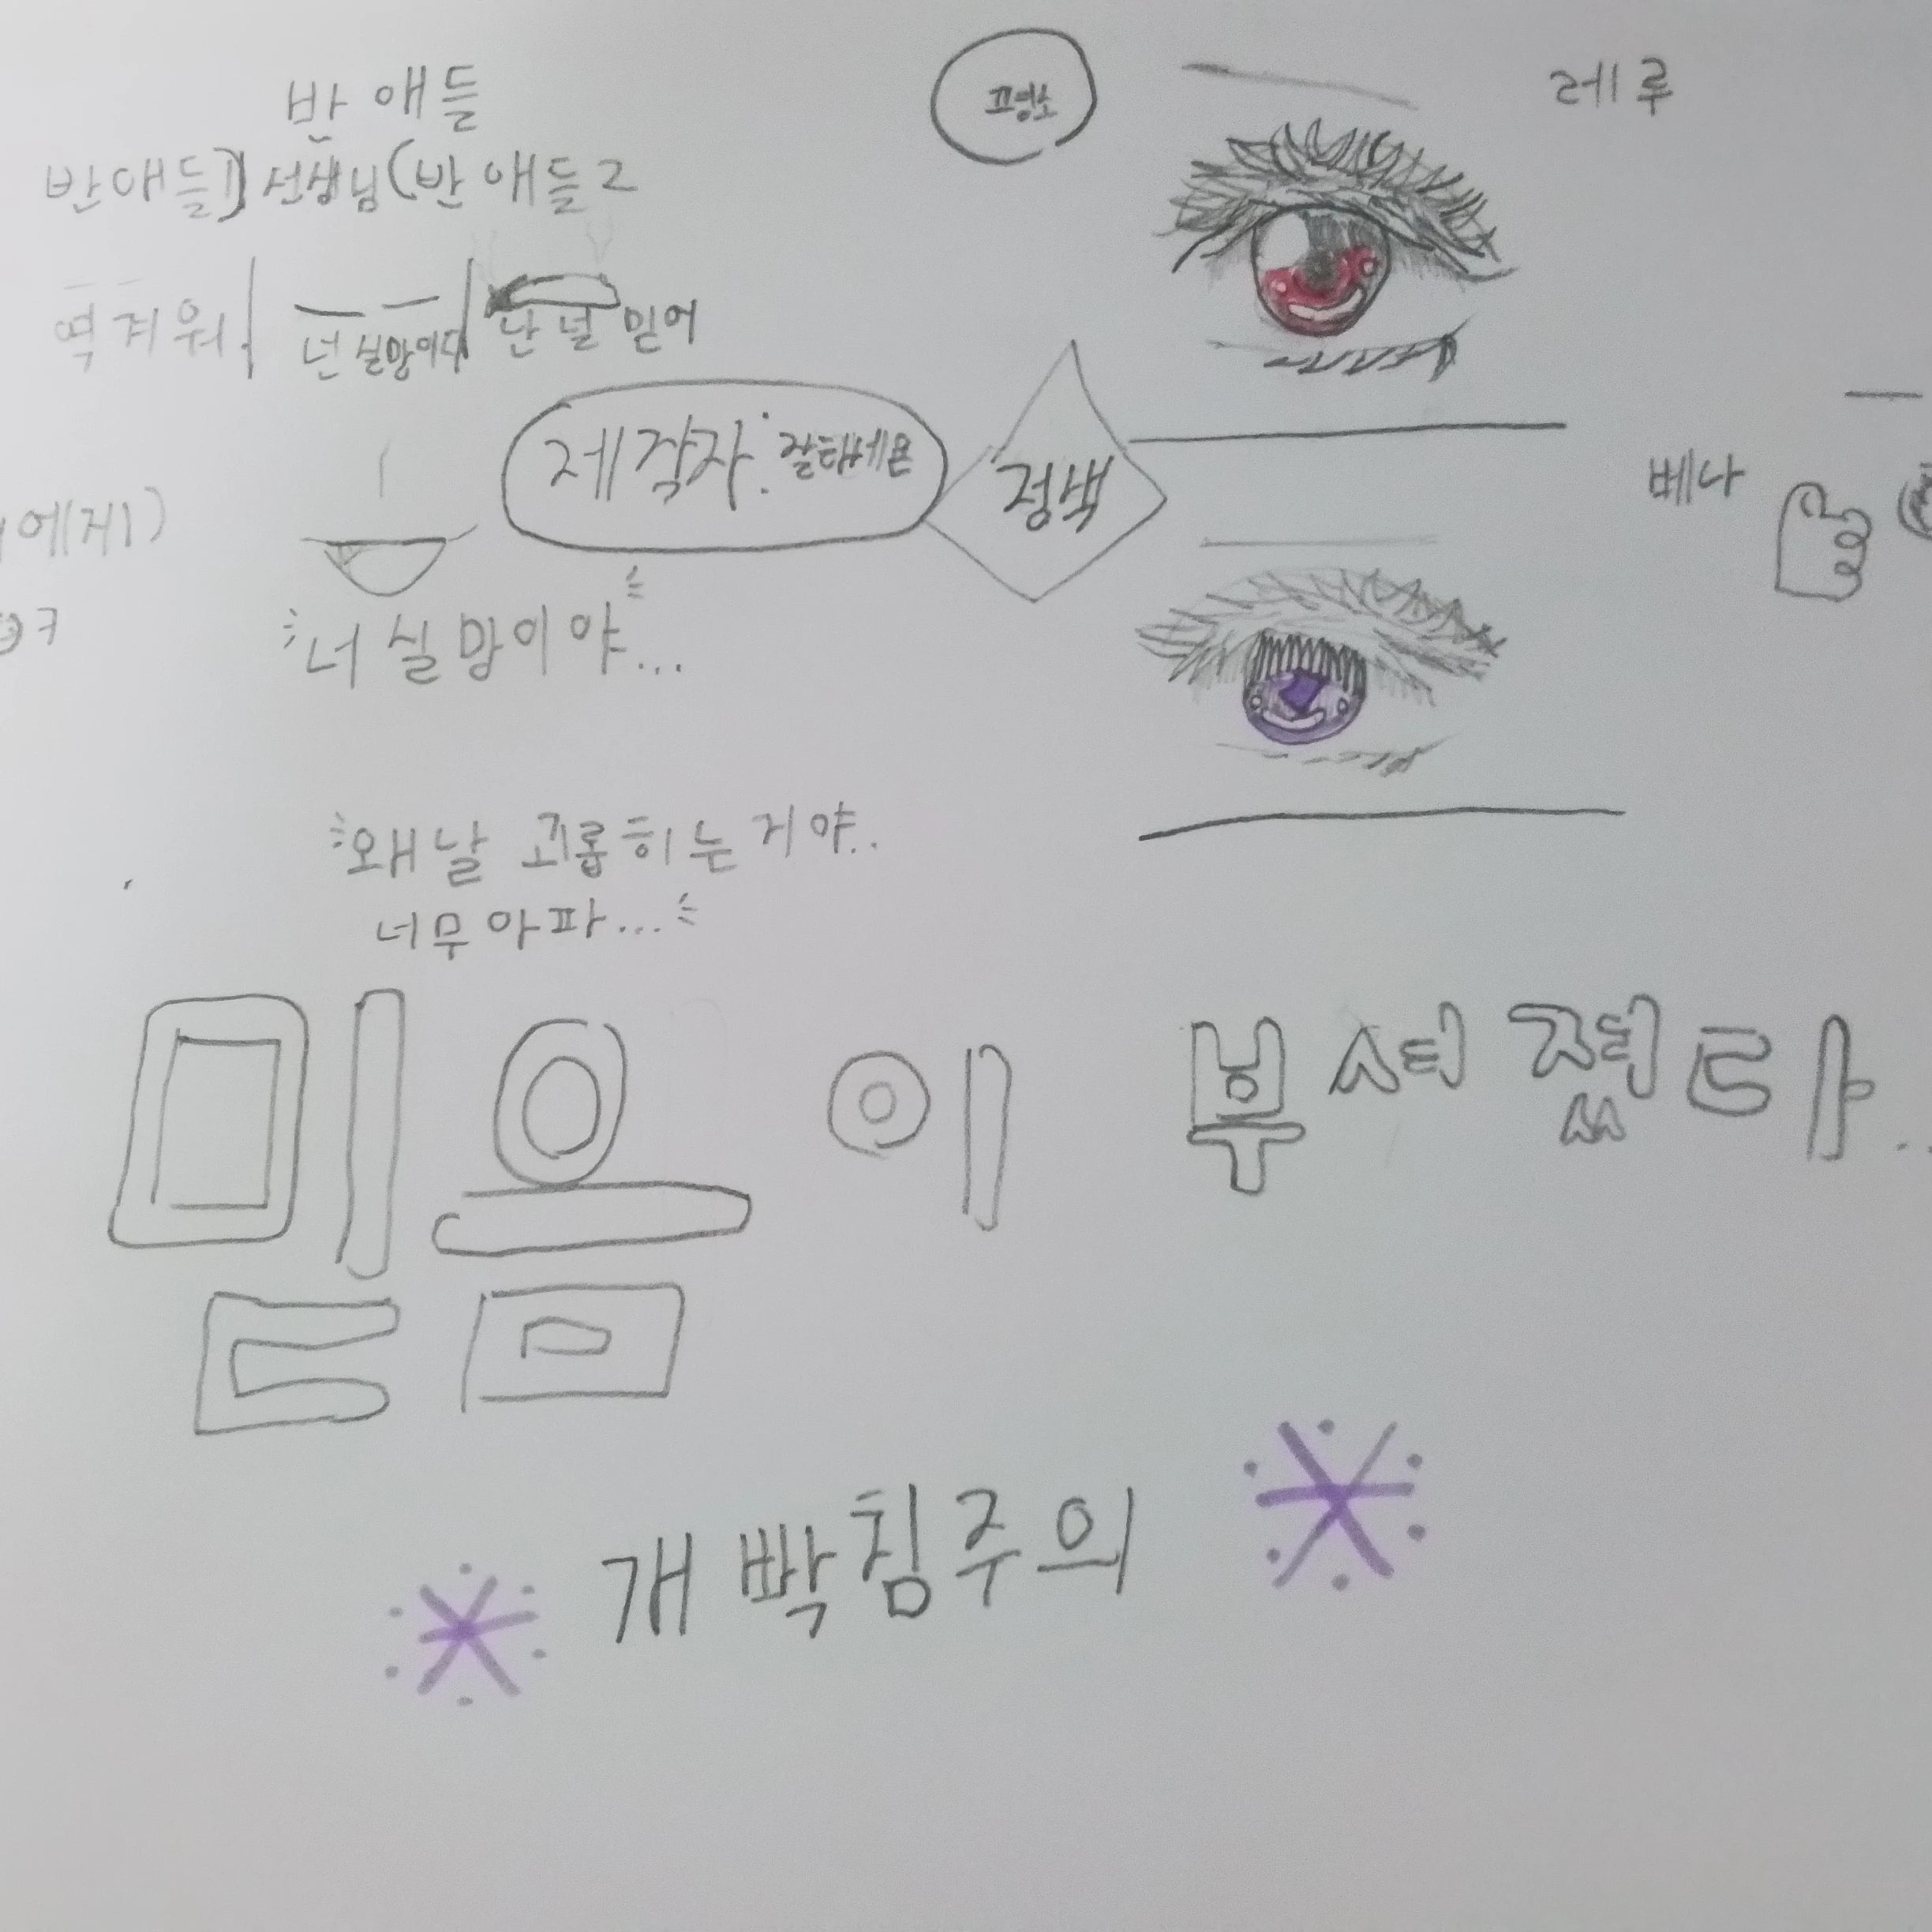 반 애들
반애들1)선생님(반 애들2
역겨워.
넌 실망이다
난 널 믿어
제작자:
정색
레루
베나
에게)
너 실망이야...
왜 날 괴롭히는 거야..
너무 아파...
믿음이 부서졌다..
※개빡침주의※